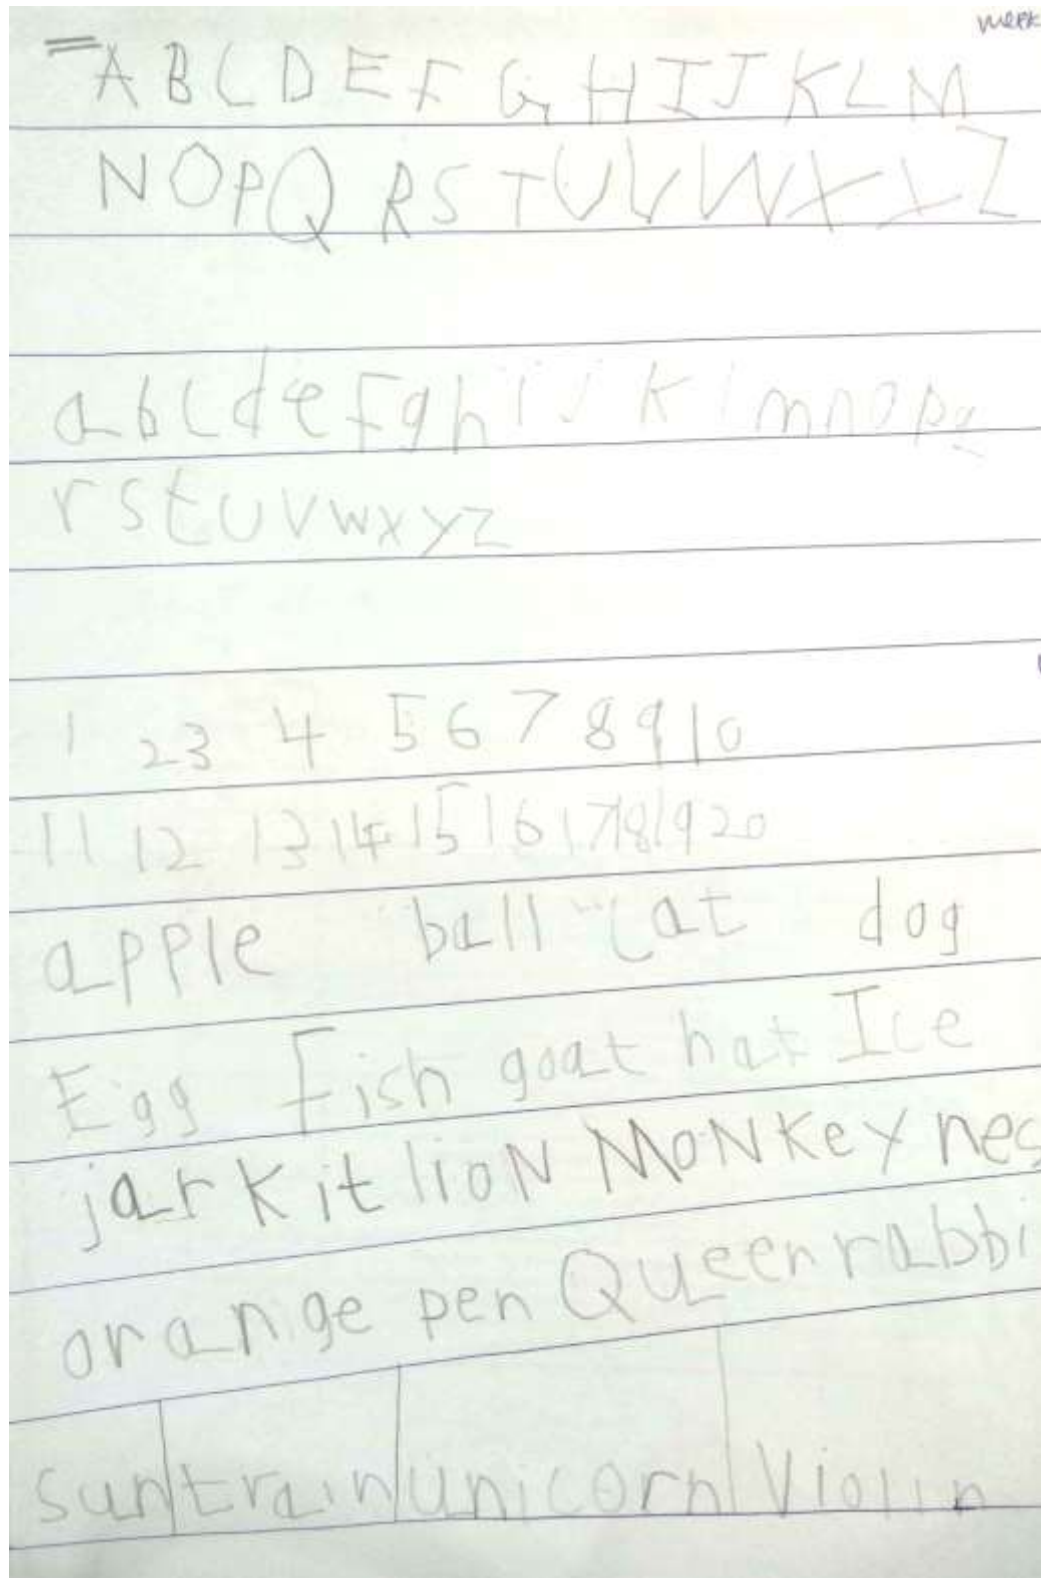 week
A B C D E F G H I J K L M
N O P Q R S T U V W X Y Z
a b c d e F g h i j k l m n o p q
r s t u v w x y z
1 2 3 4 5 6 7 8 9 10
11 12 13 14 15 16 17 18 19 20
apple ball cat dog
Egg Fish goat hat Ice
jar Kit lioN MoNKey nes
orange pen Queen rabbi
sun train unicorn Violin